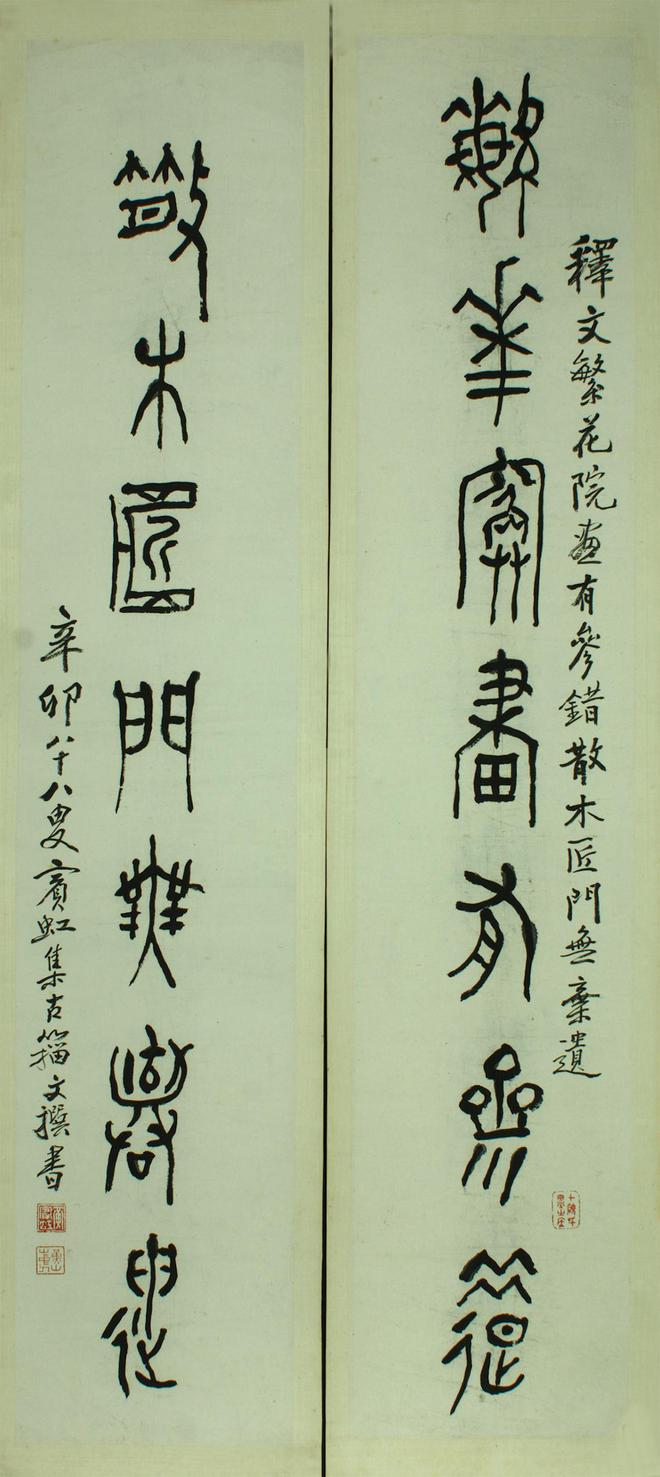 繁花院畫有參錯
釋文繁花院畫有參錯散木匠門無棄遺
散木匠門無棄遺
辛卯八十八叟賓虹集古籀文撰書